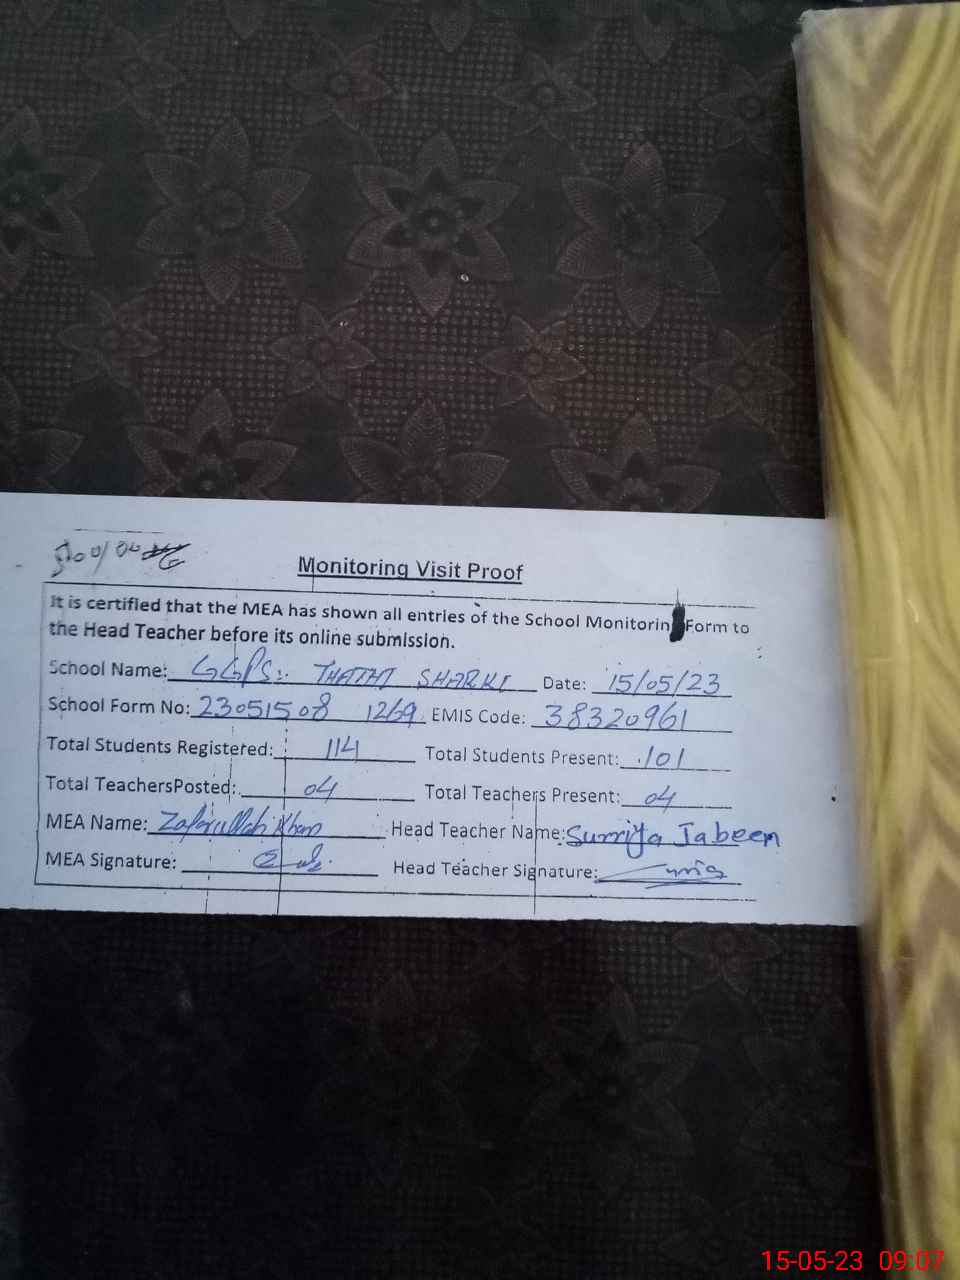 Monitoring Visit Proof
It is certified that the MEA has shown all entries of the School Monitorin Form to
the Head Teacher before its online submission.
School Name: GGPS: THATHI SHARKI Date: 15/05/23
School Form No: 23051508 1269 EMIS Code: 38320961
Total Students Registered: 114 Total Students Present: 101
Total TeachersPosted: 04 Total Teachers Present: 04
MEA Name: Zafarullah Khan Head Teacher Name: Sumriya Jabeen
MEA Signature: Head Teacher Signature:
15-05-23 09:07